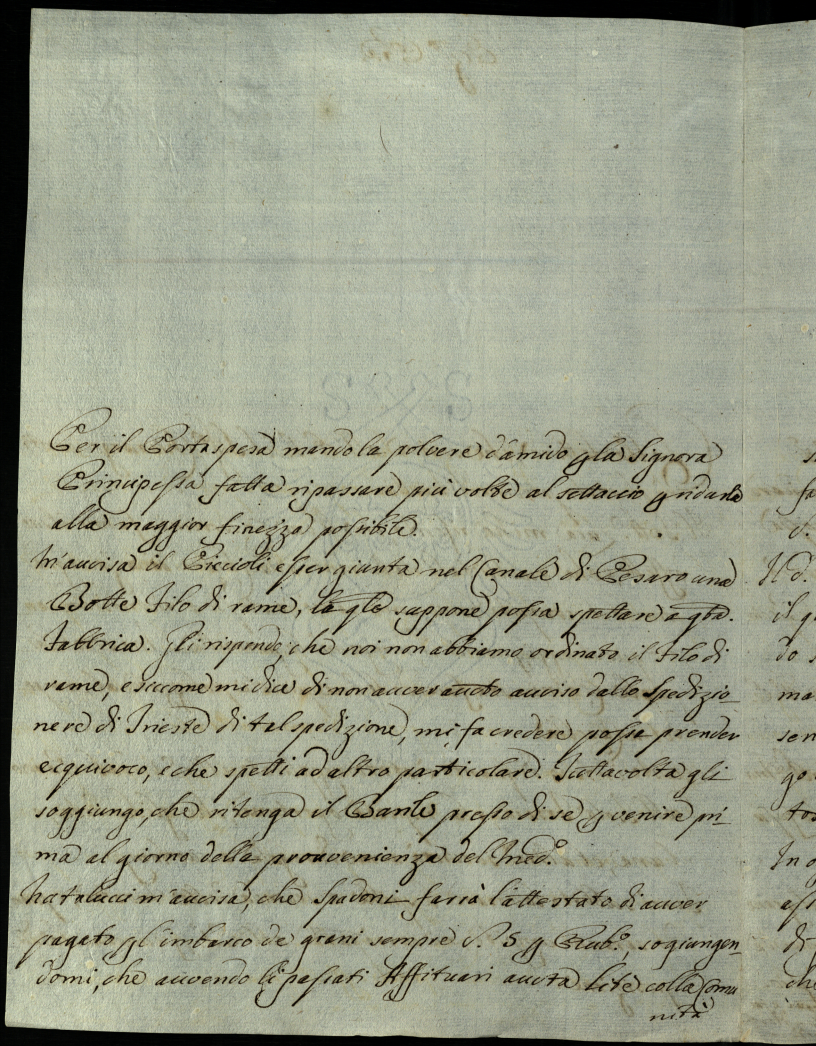 Per il Portaspesa mando la polvere d'amido p la Signora
Principessa fatta ripassare più volte al settaccio p ridurla
alla maggior finezza possibile.
M'avvisa il Piccioli esser giunta nel Canale di Pesaro una
Botte Filo di rame, la qle suppone possa spettare a qta.
Fabbrica. Gli rispondo, che noi non abbiamo ordinato il Filo di
rame, e siccome mi dice di non aver avuto avviso dallo Spedizio-
nere di Trieste di tal spedizione, mi fa credere possa prender
ecquivoco, e che spetti ad altro particolare. Tuttavolta gli
soggiungo, che ritenga il Barile presso di sè p venire pri-
ma al giorno della provenienza del Med.º
Natalucci m'avvisa, che Spadoni farià l'attestato di aver
pagato p l'imbarco de grani sempre 5 p Rub.º, sogiungen-
domi, che avendo li passati Affituari avuta lite colla Comu
nità